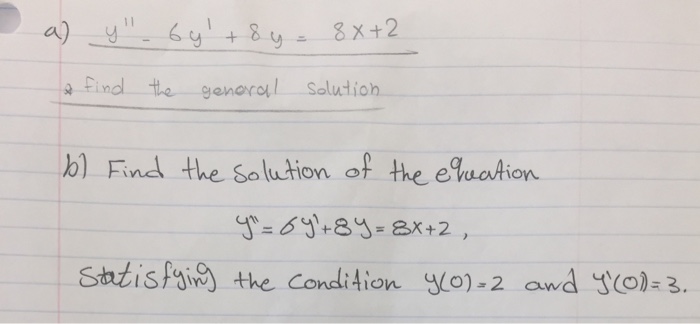 a) y'' - 6y' + 8y = 8x+2
find the general solution
b) Find the solution of the equation
y'' = 6y'+8y = 8x+2,
Statisfying the condition y(0)=2 and y'(0)=3.